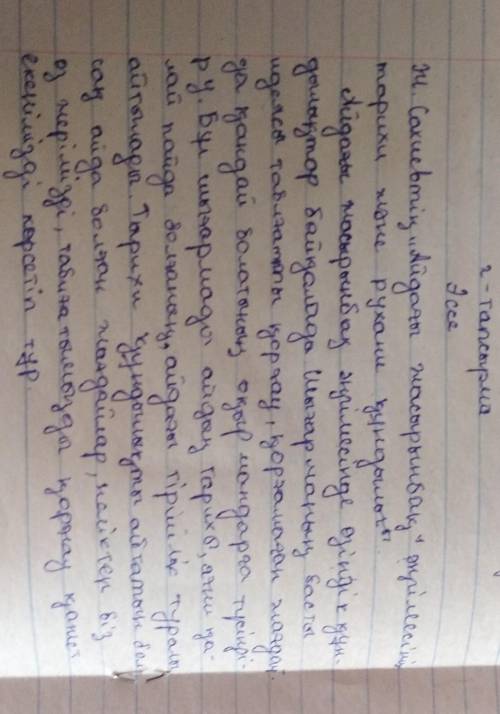 2-тапсырма
Эссе
Ж. Сахиевтің „Айдағы жасырынбақ" әңгімесінің
тарихи және рухани құндылығы
Айдағы жасырынбақ әңгімесінде өзіндік құн-
дылықтар байқалада. Шығарманың басты
идеясы табиғатты қорғау, қорғамаған жағдай-
да қандай болатының оқырмандарға түсінді-
ру. Бұл шығармада айдың тарихы, яғни қа-
лай пайда болғаның, айдағы тіршілік туралы
айтылады. Тырихи құндылықты айтатын бол-
сақ айда болған жағдайлар, кейіптер біз
өз жерімізді, табиғатымызды қорғау қажет
екенімізді көрсетіп тұр.